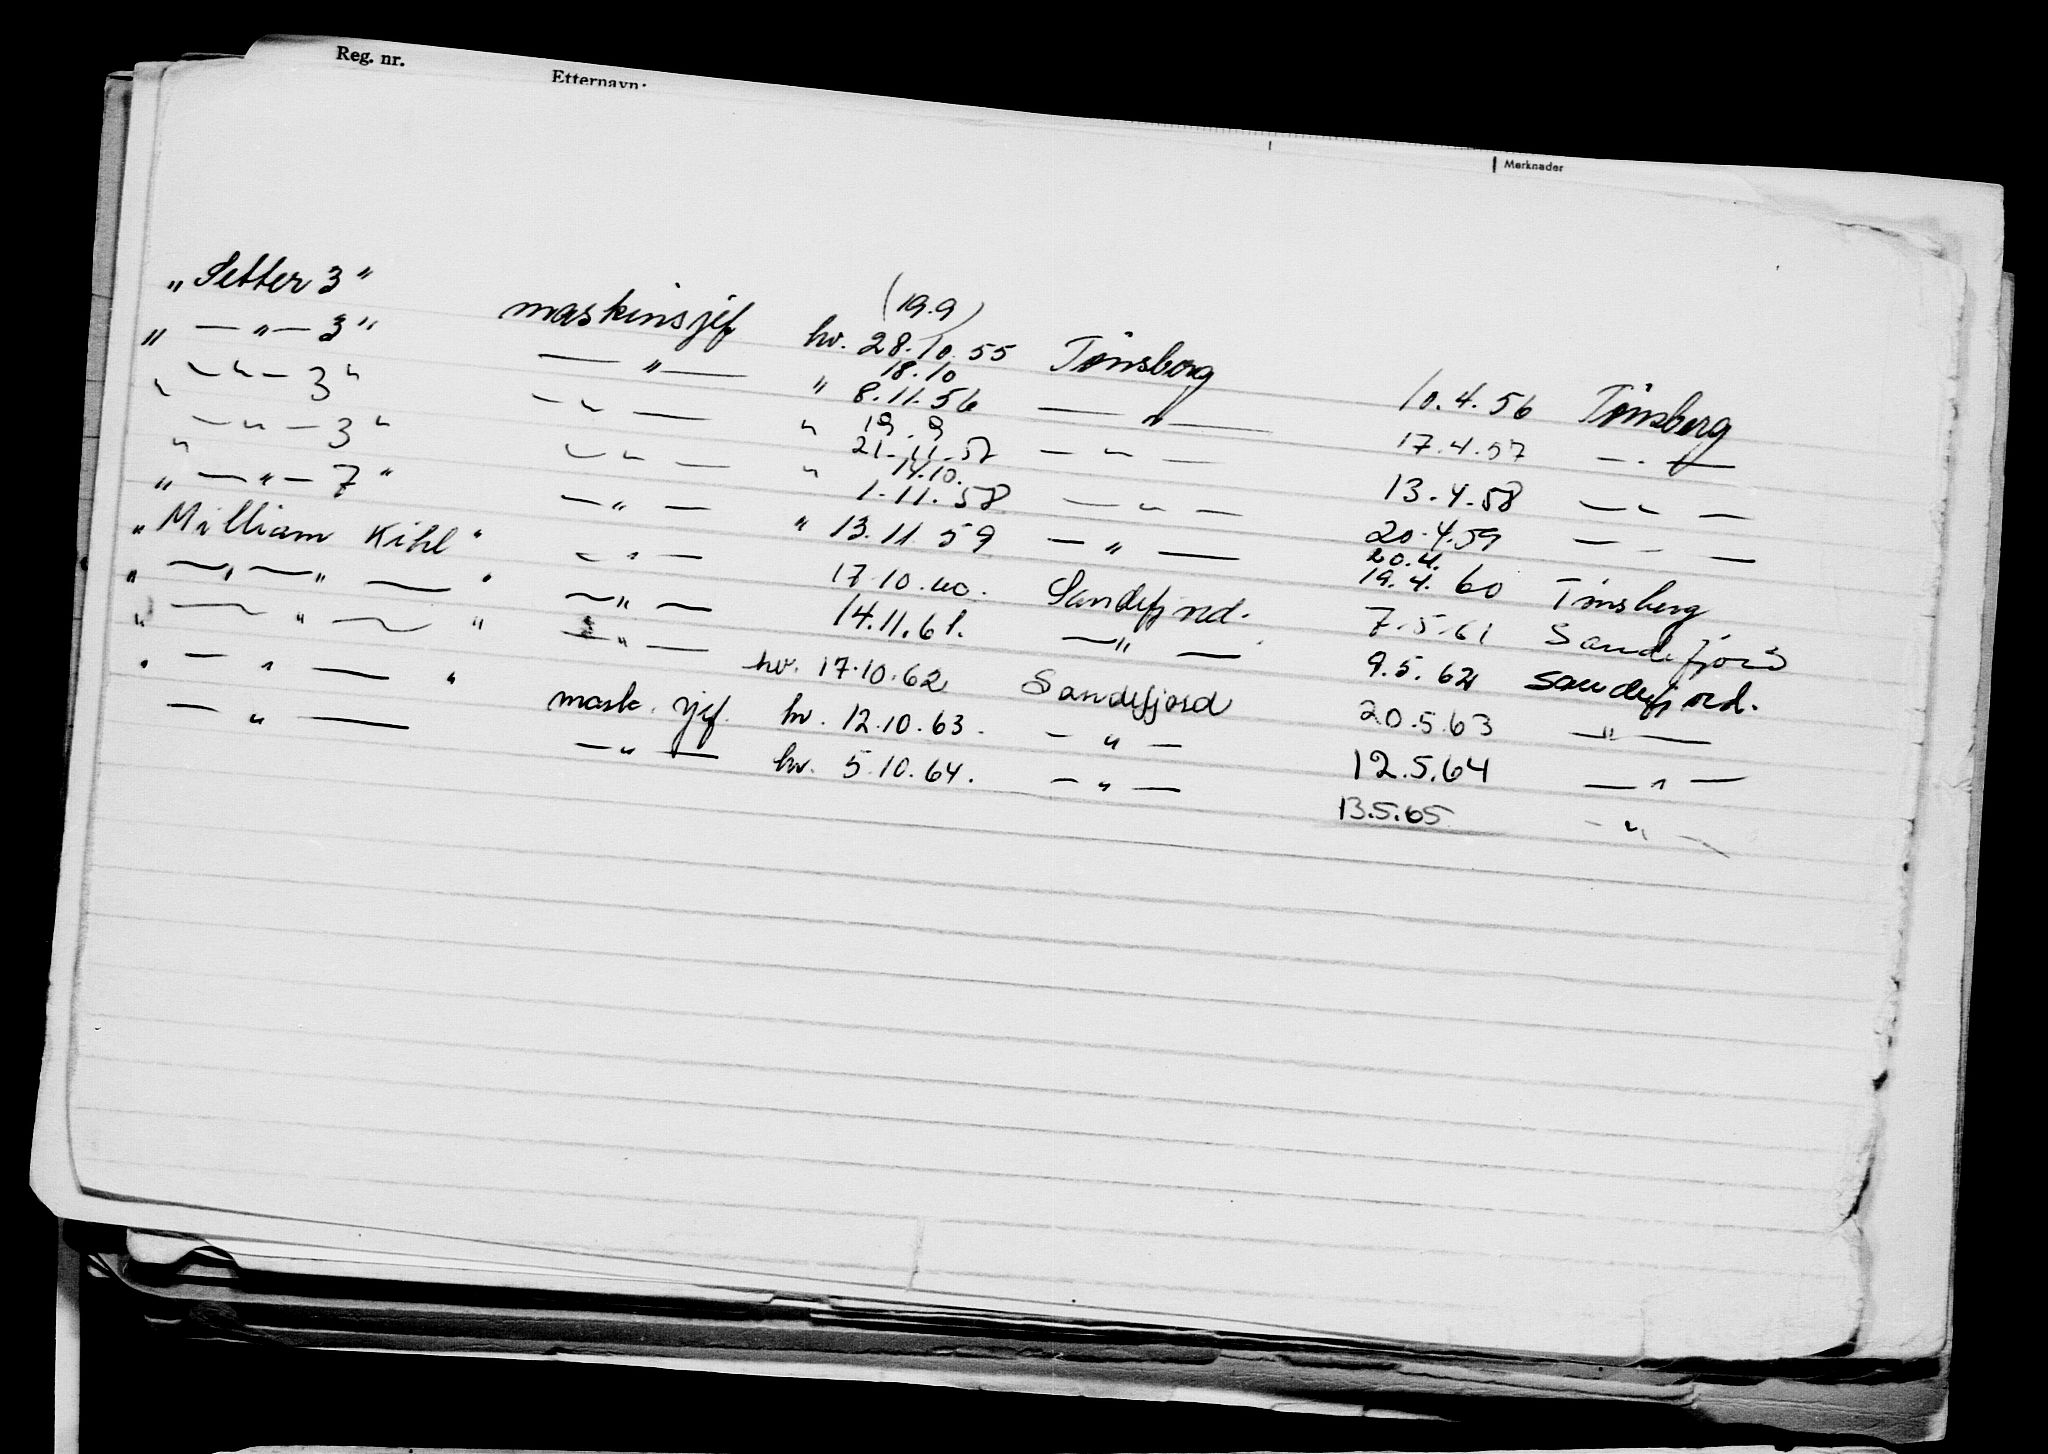 Reg. nr.
Etternavn:
Merknader
„Setter 3" maskinsjef hv. (19.9) 28.10.55 Tønsberg 10.4.56 Tønsberg
„ — „ — 3" — „ — „ 18.10 8.11.56 — „ — 17.4.57 — „ —
„ — „ — 3" — „ — „ 19.9 21.11.57 — „ — 13.4.58 — „ —
„ — „ — 3" — „ — „ 14.10. 1.11.58 — „ — 20.4.59 — „ —
„ — „ — 7" — „ — „ 13.11 59 — „ — 20.4. 19.4.60 Tønsberg
„William Kihl" — „ — 17.10.60. Sandefjord. 7.5.61 Sandefjord
„ — „ — „ — " — „ — 14.11.61. — „ — 9.5.62 Sandefjord.
„ — „ — " — „ — hv. 17.10.62 Sandefjord 20.5.63 — „ —
„ — „ — " mask. sjef. hv. 12.10.63. — „ — 12.5.64 — „ —
— „ — — „ — hv. 5.10.64. — „ — 13.5.65 — „ —